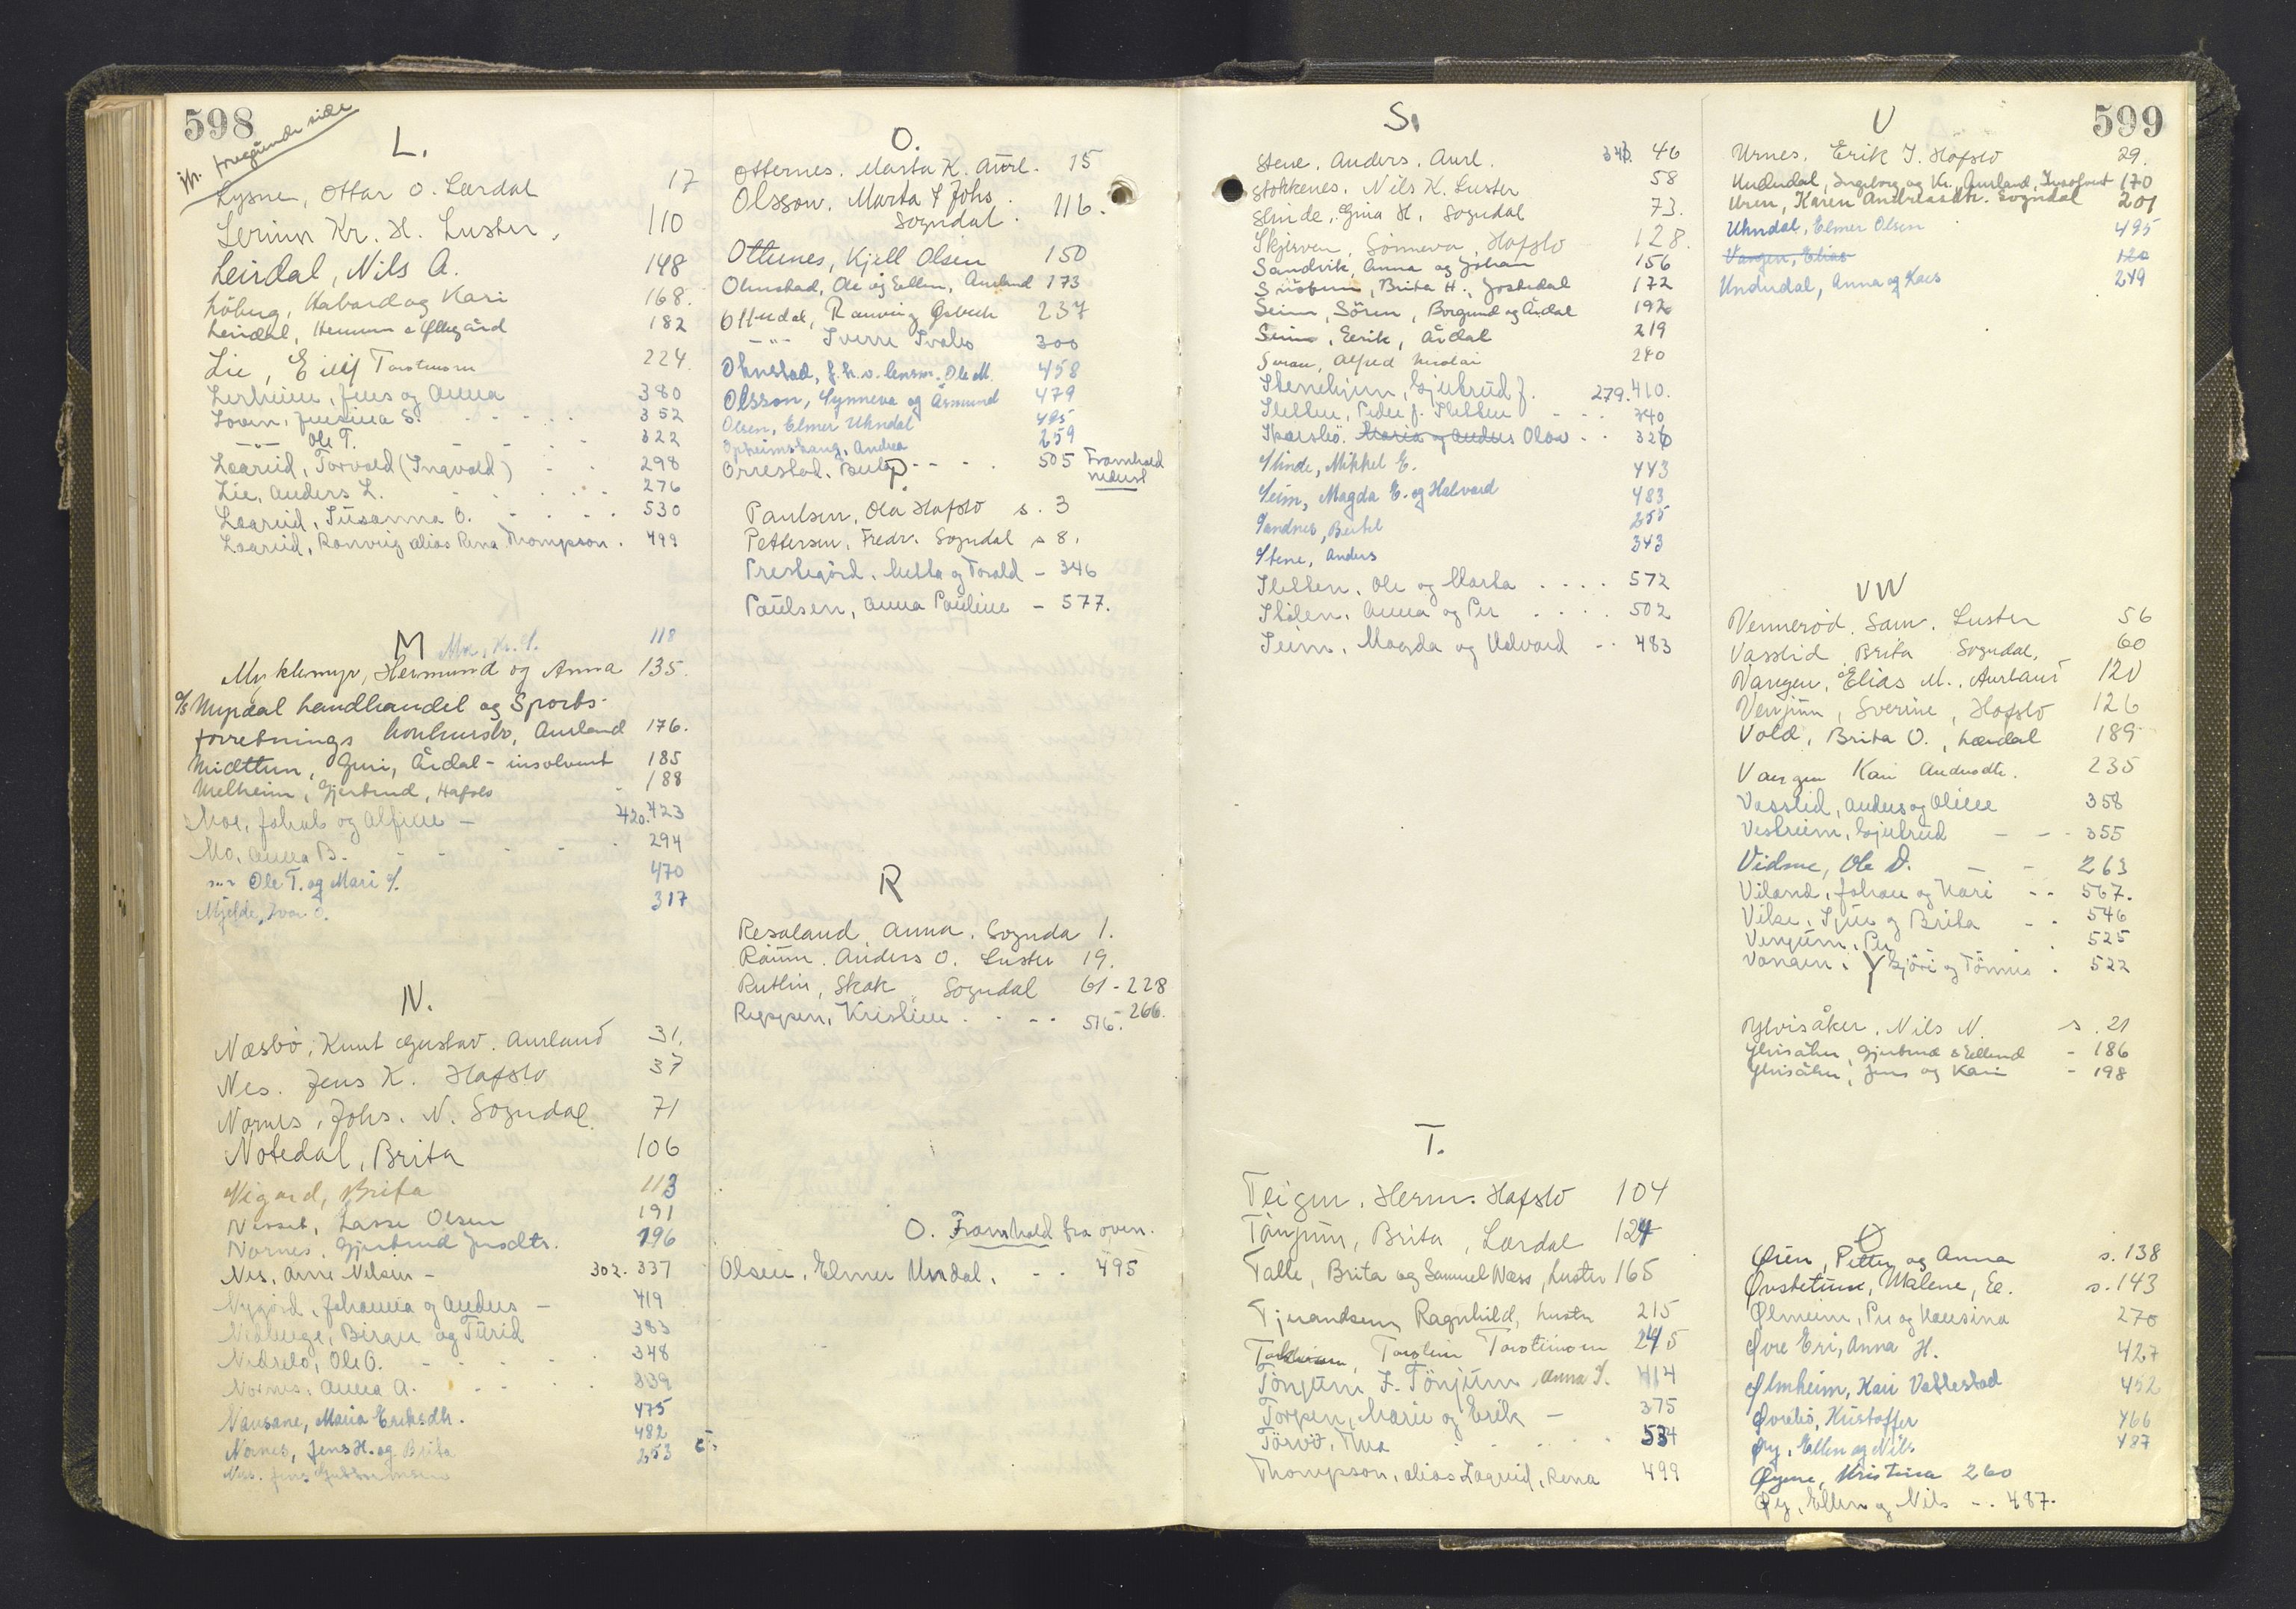 598
jfr. foregående side
L.
Lysne, Ottar O. Lærdal 17
Lerum Kr. H. Luster, 110
Leirdal, Nils A. 148
Havard og Kari 168.
182
Lie, Eilif 224.
Lerheim, Jens og Anna 380
S. - - - - - 352
-"- Ole T. - - - - 322
Torvald (Ingvald) - - 298
Lie, Anders L. - - - - 276
Susanna O. - - - - 530
Rønnvig alias Rena Thompson. 499
M
Mo, Kr. S. 118
Myklemyr, Hermund og Anna 135.
A/S Myrdal landhandel og Sports-
forretnings konkursbo, Aurland 176.
Midttun, Guri, Årdal - insolvent 185
Melheim, Gjertrud, Hafslo - 188
Moe, Johan og - 420. 423
Mo, Anna B. - - - - - 294
-"- Ole T. og Mari S. 470
Mjelde, Ivar O. 317
N.
Næsbø, Knut Gustav. Aurland 31.
Nes. Jens K. Hafslo 37
Nornes, Johs. N. Sogndal. 71
Notedal, Brita 106
Nigard, Brita 113
Lasse Olsen 191
Nornes, Gjertrud 196
Nes, Arne Nilsen - 302. 337
Nygård, Johanna og Anders - 419
Birger og Turid 383
Ole O. - - - - 348
Nornes, Anna A. - - - 339
Maria Eriksdtr. 475
Nornes, Jens H. og Brita 482
253
Nes. Jens
O.
Otternes. Marta K. Aurl. 15
Olsson. Marta & Johs.
Sogndal. 116.
Otternes, Kjell Olsen 150
Ohnstad, Ole og Ellen, Aurland 173
237
-"- Sverre 300
Ohnstad, f.h.v. lensm. Ole M. 458
Olsson, Synneva og Åsmund 479
Olsen, Elmer Undal 495
Opheimshaug, Andrea 259
Orrestad. - - - - 505 Framhald nedust
P
Paulsen, Ola Hafslo s. 3
Pettersen, Fredr. Sogndal s 8.
Prestegård, og Torald - 346
Paulsen, Anna Pauline - 577.
R
Resaland, Anna. Sogndal 1.
Raum. Anders O. Luster 19.
Rutlin, Skak, Sogndal 61 - 228
Reppen, Kristine. - - - 516. 266.
O. Framhald fra oven.
Olsen, Elmer Undal, - - 495
599
S.
Stene, Anders. Aurl. 343. 46
Stokkenes. Nils K. Luster 58
Slinde, Gina H. Sogndal 73.
Skjerven, Sønneva, Hafslo 128.
Sandvik, Anna og Johan 156
Brita H., Jostedal 172
Seim, Sören, Borgund og Årdal 192
Seim, Eerik, Årdal 219
Alfred Nicolai 240
Stenehjem, Gjertrud J. 279. 410.
Sletten, Peder J. Sletten - - - 340
Skarsbø. Maria og Anders Olav - - 326
Slinde, Mikkel E. 443
Seim, Magda E. og Halvard 483
Sandnes, Bertel 255
Stene, Anders 343
Sletten, Ole og Marta - - - - 572
Anna og Per - - - - 502
Seim, Magda og Halvard - - 483
T.
Teigen, Herm. Hafslo 104
Tønjum, Brita, Lærdal 124
Talle, Brita og Samuel Næss, Luster 165
Tjerandsen, Ragnhild, Luster 215
Torstein 245
Tönjum J. Tönjum, Anna S. 414
Torpen, Marie og Erik - 375
Thea - - - - 534
Thompson, alias Rena 499
U
Urnes. Erik J. Hafslo 29.
Undredal, Ingeborg og Kr. Aurland, Insolvent 170
Uren, Karen Andreasdtr. Sogndal 201
Undal, Elmer Olsen 495
Vangen, Elias 120
Undredal, Anna og Lars 249
VW
Vennerød. Sam. Luster 56
Vasslid, Brita Sogndal, 60
Vangen, Elias M., Aurland 120
Venjum, Sverine, Hafslo 126
Vold, Brita O., Lærdal 189
Vangen Kari Andersdtr. 235
Vasslid, Anders og Oline 358
Vestreim, Gjertrud - - - 355
Vidme, Ole D. - - 263
Viland, Johan og Kari - - 567.
og Brita - - 546
Venjum, Per - - - 525
Vangen, Gjöri og Tönnes. 522
Y
Ylvisåker, Nils N. s. 21
Ylvisåker, Gjertrud & Ellend - 186
Ylvisåker, Jens og Kari - 198
Ø
Øren, Petter og Anna s. 138
Øvstetun, Malene, Ee. s. 143
Ølmeim, Per og Hansina 270
Øvre Eri, Anna H. 427
Ølmheim, Kari Vallestad 452
Øvrebø, Kristoffer 466
Øy, Ellen og Nils 487
Øyene, Kristina 260
Øy, Ellen og Nils - - 487.